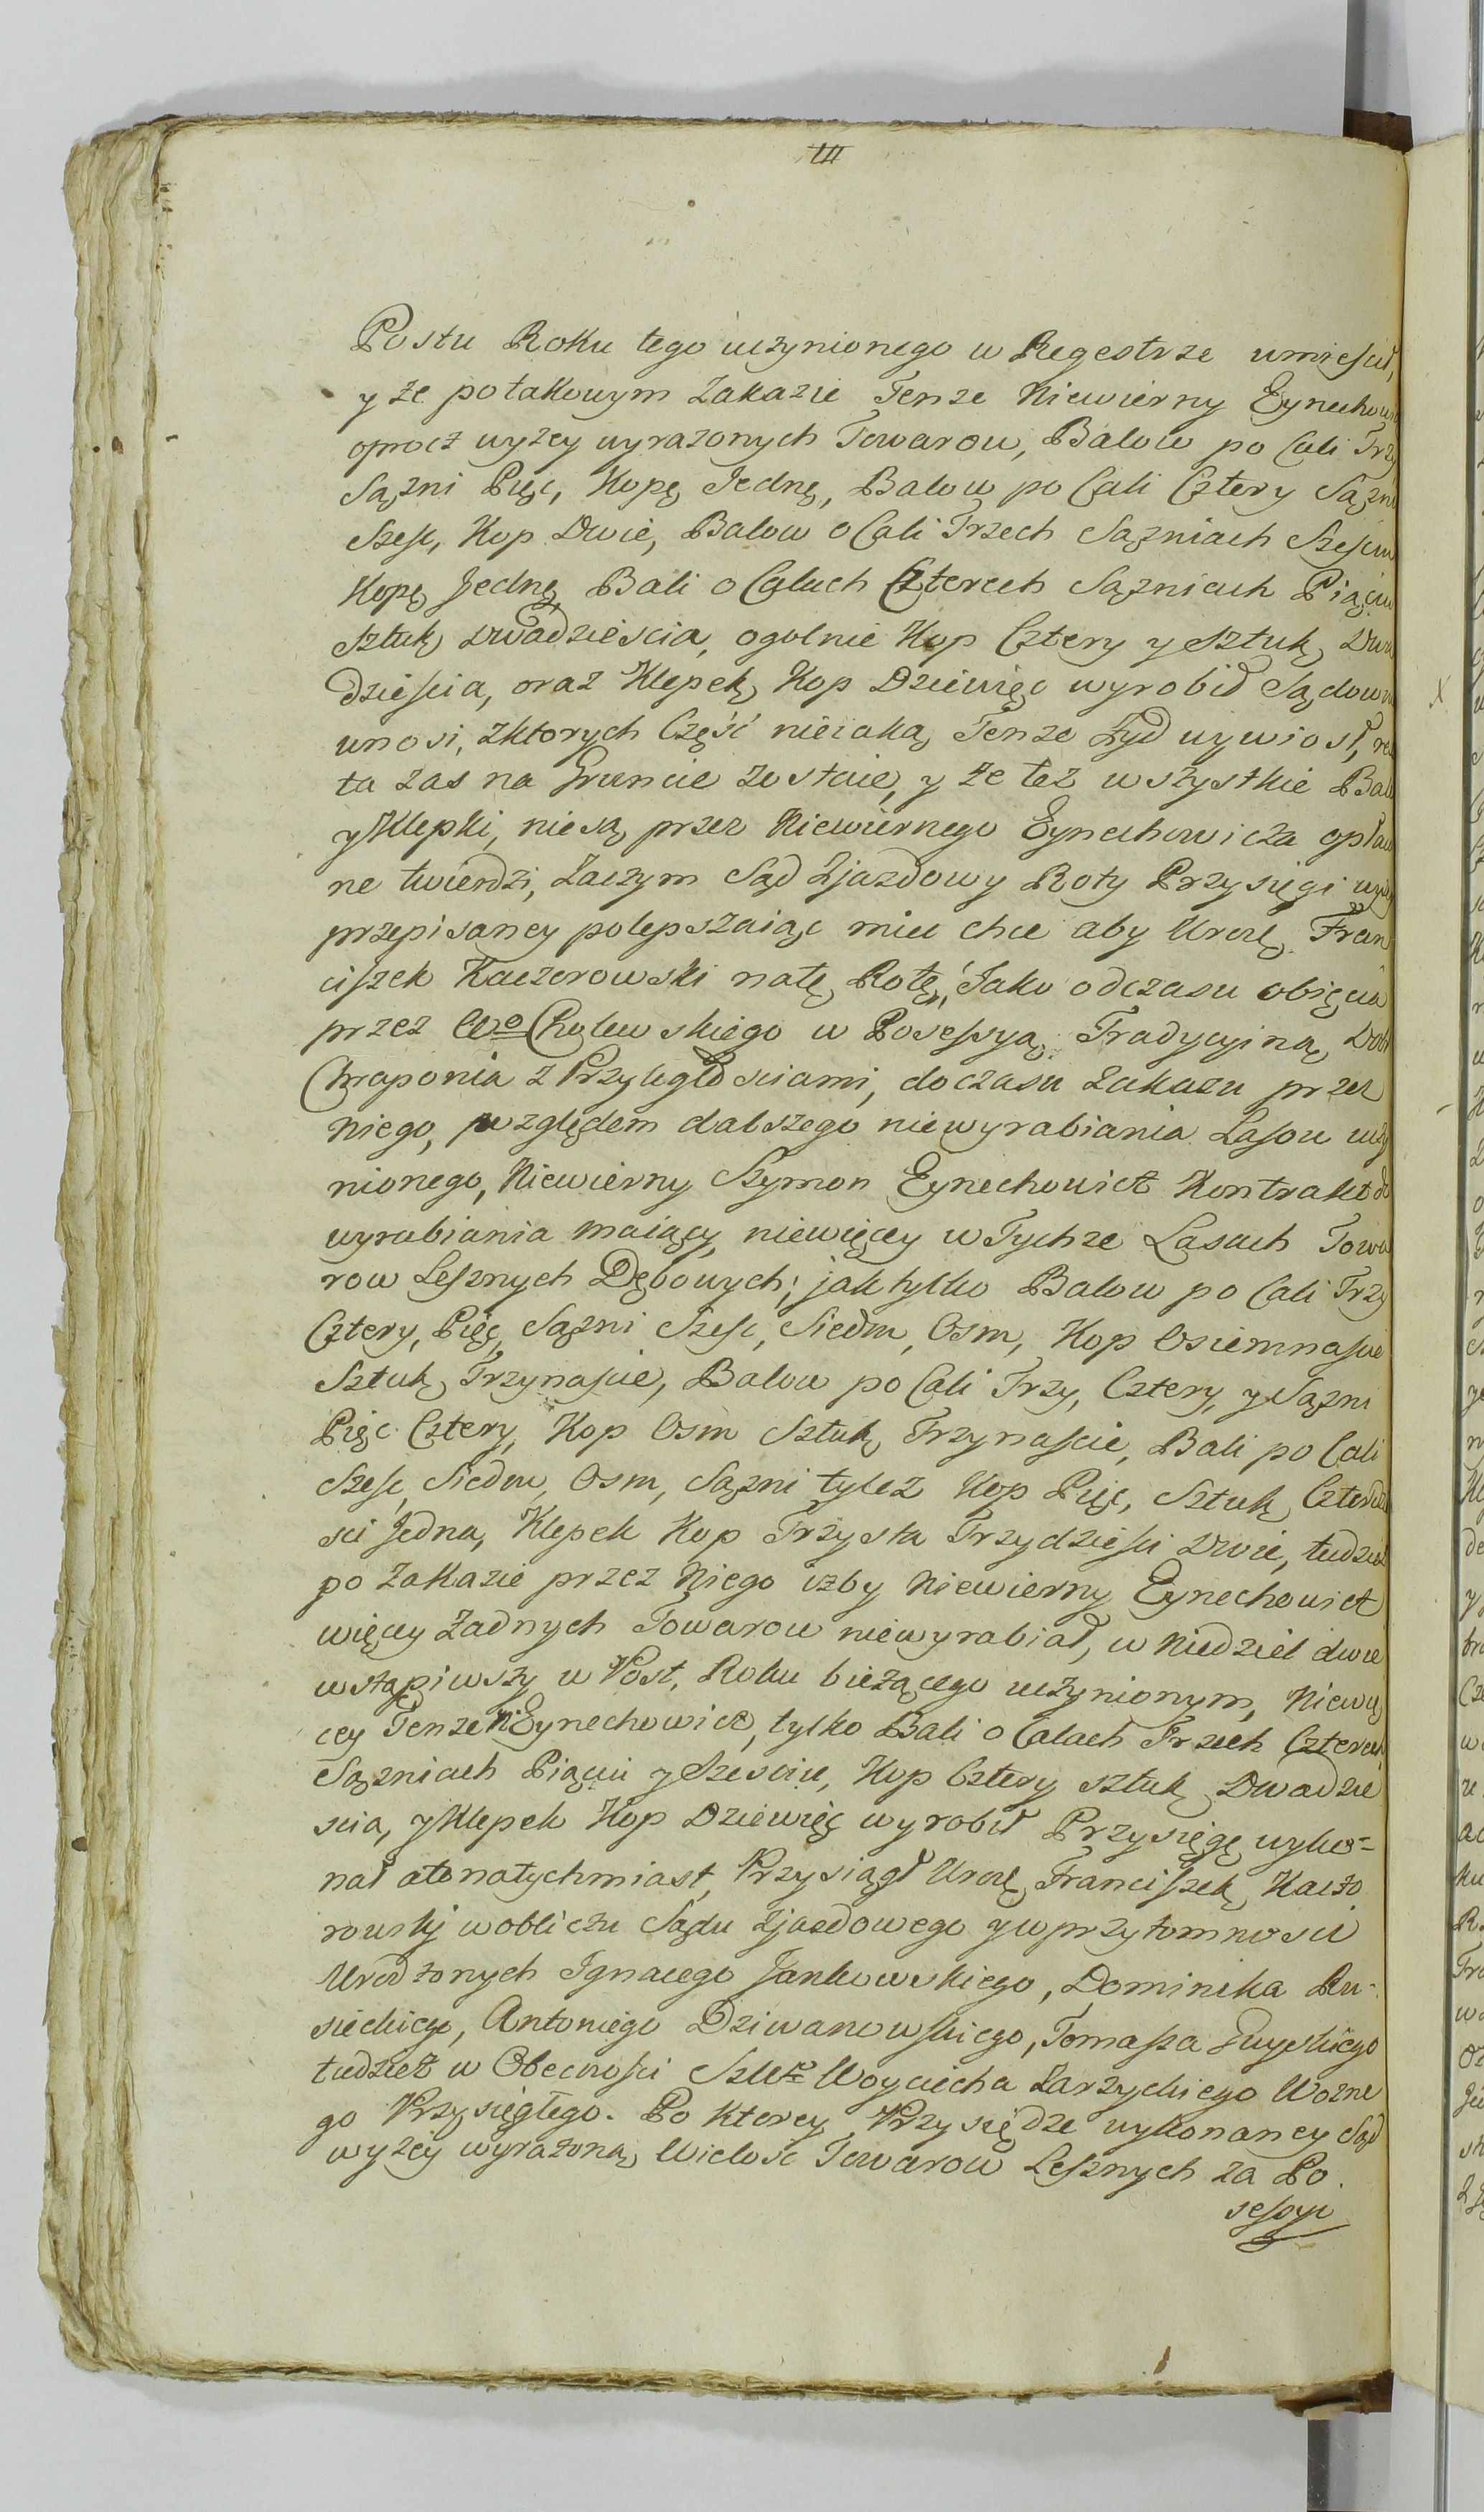 Postu Roku tego uczynionego w Regestrze umiescił,
y że potakowym Zakazie Tenze Niewierny Eynechowi
oprocz wyzey wyrazonych Towarow, Balow po Cali Trzy
Sązni Pięc, Kopę Jednę, Balow po Cali Cztery Sązni
Szesc, Kop Dwie, Balow o Cali Trzech Sązniach Szesciu
Kopę Jednę, Bali o Caluch Czterech Sązniach Piąciu
Sztuk dwadziescia, ogolnie Kop Cztery y Sztuk Dwa
dziescia, oraz Klepek, Kop Dziewięc wyrobił Sądown
unosi, zktorych Część nieiaką Tenze Żyd wywiosł, res
ta zas na Gruncie zostaie, y że też wszystkie Bale
y Klepki, niesą przez Niewiernego Eynechowicza opłaco
ne twierdzi, Zaczym Sąd Zjazdowy Roty Przysięgi wyżey
przepisaney polepszaiąc miec chce aby Urodz Fran
ciszek Kaczorowski natę Rotę, Jako odczasu obięcia
przez Wo Cholewskiego w Posessyą Tradycyiną Dobr
Chraponia z Przyległosciami, doczasu Zakazu przez
niego, względem dalszego niewyrabiania Lasow uczy
nionego, Niewierny Szymon Eynechowicz Kontrakt do
wyrabiania maiący, niewięcey w Tychze Lasach Towa
row Lesznych Dębowych; jak tylko Balow po Cali Trzy
Cztery, Pięc, Sązni Szesc, Siedm, Osm, Kop Osiemnascie
Sztuk Trzynascie, Balow po Cali Trzy, Cztery, y Sązni
Pięc Cztery, Kop Osm Sztuk Trzynascie, Bali po Cali
Szesc, Siedm, Osm, Sązni tyleż Kop Pięc, Sztuk Czterdzie
sci Jedna, Klepek Kop Trzysta Trzydziesci Dwie, tudziesz
po Zakazie przez Niego izby Niewierny Eynechowicz
więcey Żadnych Towarow niewyrabiał, w Niedziel dwie
wstąpiwszy w Post, Roku bieżącego uczynionym, Niewię
cey Tenze N Eynechowicz, tylko Bali o Calach Trzech Czterech
Sązniach Piąciu y Szesciu, Kop Cztery sztuk Dwadzie
scia, y Klepek Kop Dziewięc wyrobił Przysięgę wyko=
nał ato natychmiast, Przysiągł Urodz Franciszek Kaczo
rowskj wobliczu Sądu Zjazdowego y w przytomnosci
Urodzonych Ignacego Jankowskiego, Dominika Ru=
sieckiego, Antoniego Dziwanowskiego, Tomasza
tudzież w Obecnosci Woyciecha Zarzyckiego Wozne
go Przysięgłego. Po ktorey Przysiędze wykonaney Sąd
wyzey wyrażoną Wielosc Towarow Lesznych za Po.
sessyi